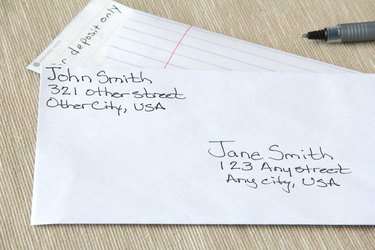 or deposit only
John Smith
321 Other street
Other City, USA
Jane Smith
123 Any street
Any City, USA